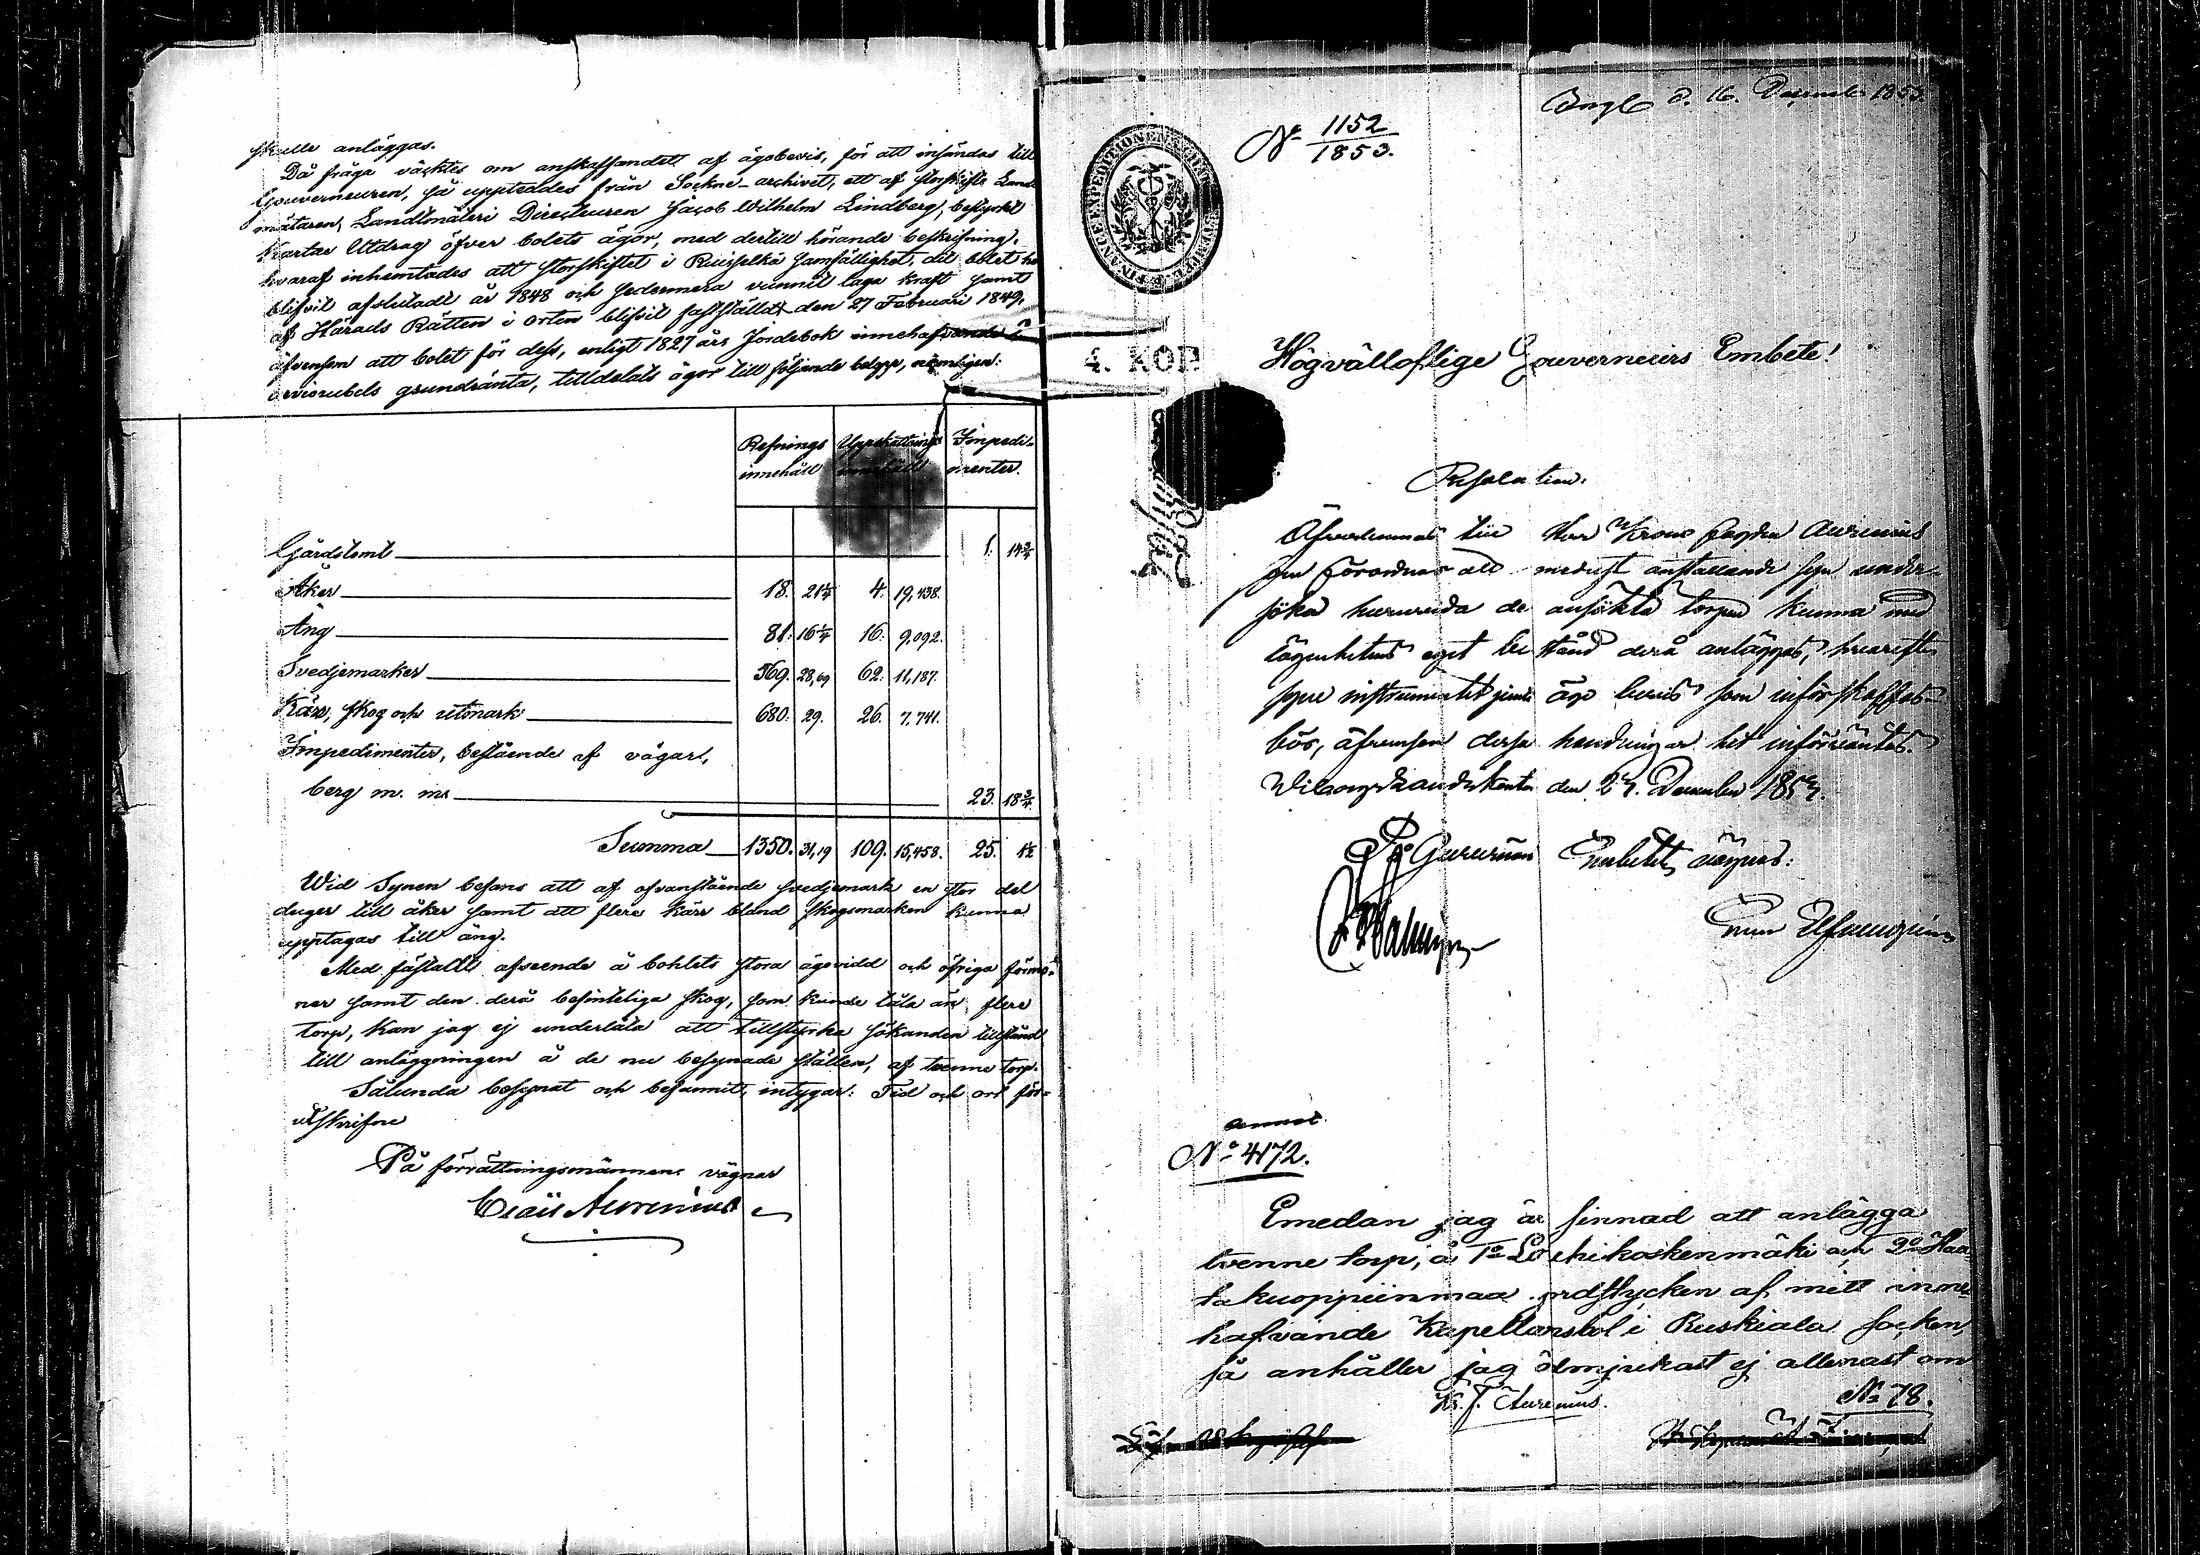 skulle anläggas.
Då fråga väcktes om anskaffandett af ägobevis, för att insändas till
Gouverneuren, så uppteddes från Sockne-archivet, ett af storskifts Landt
mätaren, Landtmäteri Directeuren Jacob Wilhelm Lindberg, bestyrkt
Kartae Utdrag öfver bolets ägor, med dertill hörande beskrifning,
hvaraf inhemtades att storskiftet i Ruisselkä Samfällighet, dit bolet hö
blifvit afslutadt år 1848 och sedermera vunnit laga kraft samt
af Härads Rätten i orten blifvit fastställdt den 27 Februari 1849,
äfvensom att bolet för dess, enligt 1827 års Jordebok innehafvande
grundränta, tilldelats ägor till följande belopp, nemligen:
Refnings innehåll Uppskattnings innehåll Impedi-
menter.
Gårdstomt 1. 14 3/4
Åker 18. 21 1/4 4. 19,438.
Äng 81. 16 1/4 16. 9,092.
Svedjemarker 569. 28,69 62. 11,187.
Kärr, skog och utmark 680. 29. 26. 7,741.
Impedimenter, bestående af vägar,
berg m. m. 23. 18 3/4
Summa 1350. 31,19 109. 15,458. 25. 1 1/2
Wid Synen befans att af ofvanstående svedjemark en stor del
duger till åker samt att flere kärr bland skogsmarken kunna
upptagas till äng.
Med fästadt afseende å bohlets stora ägovidd och öfriga förmå-
ner samt den derå befinteliga skog, som kunde tåla än flere
torp, kan jag ej underlåta att tillstyrka sökanden tillstånd
till anläggningen å de nu besynade ställen, af tvenne torp.
Sålunda besynat och befunnit, intygar: Tid och ort för-
utskrifne
På förrättningsmännens vägnar
Claës Aurenius
d. 16. December 1853.
No 1152
1853.
FINANCEEXPEDITIONEN
4. KOP
Högvälloflige Gouverneurs Embete!
Resolution.
till Herr Krono Fogden Aurenius
som förordnas att medelst anställande syn under-
söka huruvida de ansökta torpen kunna med
lägenhetens eget bestånd derå anläggas, hvarefter
syne instrumentet jemte ägo bevis som införskaffas
bör, äfvensom dessa handlingar hit införväntas.
Landskontor den 27. December 1853.
På Guverneurs Embetets vägnar:
No 4172.
Emedan jag är sinnad att anlägga
tvenne torp, å 1o Lohikoskenmäki och 2o Haa
takuoppiinmaa jordstycken af mitt inne-
hafvande Kapellansbol i Ruskiala socken,
så anhåller jag ödmjukast ej allenast om
Kr. f. Aurenius.
No 78.